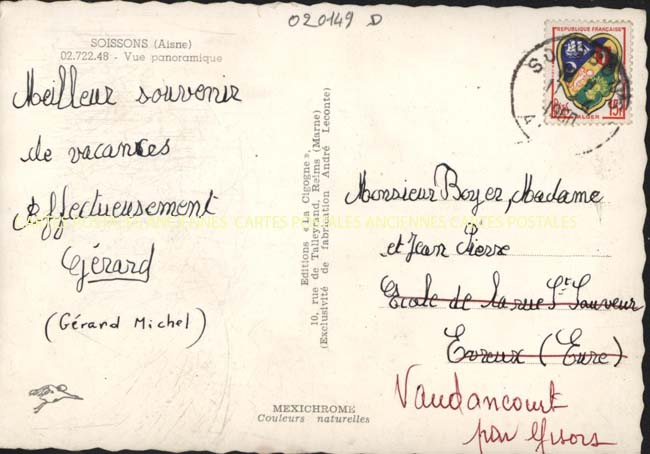 020149 D
SOISSONS (Aisne)
02.722.48 - Vue panoramique
Meilleur souvenir
de vacances
Effectueusement
Gérard
(Gérard Michel)
Editions « La Cigogne »,
10, rue de Talleyrand, Reims (Marne)
(Exclusivité de fabrication André Leconte)
MEXICHROME
Couleurs naturelles
REPUBLIQUE FRANÇAISE
15F
ALGER
Monsieur Boyer, Madame
et Jean Pierre
Ecole de la rue St Sauveur
Evreux (Eure)
Vaudancourt
par Gisors
CARTES POSTALES ANCIENNES CARTES POSTALES